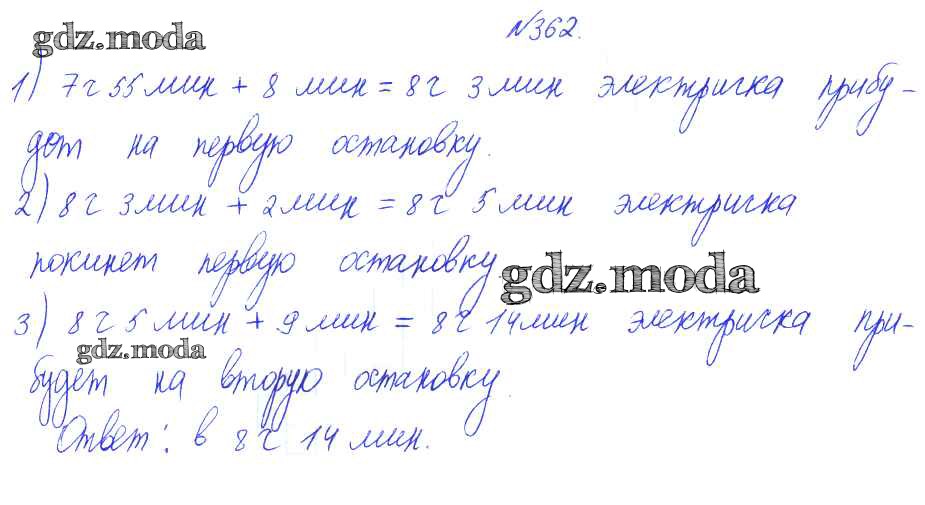 №362.
gdz.moda
1) 7 ч 55 мин + 8 мин = 8 ч 3 мин электричка прибу-
дет на первую остановку.
2) 8 ч 3 мин + 2 мин = 8 ч 5 мин электричка
покинет первую остановку
gdz.moda
3) 8 ч 5 мин + 9 мин = 8 ч 14 мин электричка при-
gdz.moda
будет на вторую остановку.
Ответ: в 8 ч 14 мин.